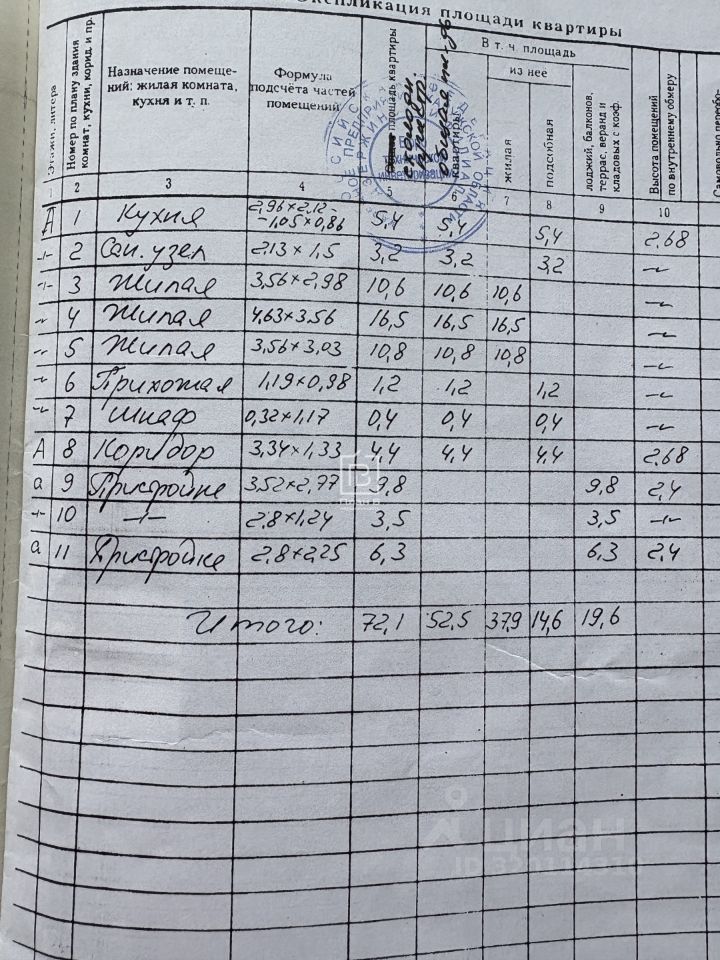 Экспликация площади квартиры
Этажи, литера
Номер по плану здания комнат, кухни, корид. и пр.
Назначение помеще-
ний: жилая комната,
кухня и т. п.
Формула
подсчёта частей
помещений
площадь квартиры
общая пл-дь
квартиры
В т. ч. площадь
из нее
жилая
подсобная
лоджий, балконов,
террас, веранд и
кладовых с коэф.
Высота помещений
по внутреннему обмеру
2 3 4 5 6 7 8 9 10
А 1 Кухня 2,96×2,12- -1,05×0,86 5,4 5,4 5,4 2,68
-"- 2 Сан. узел 2,13×1,5 3,2 3,2 3,2 -"-
-"- 3 Жилая 3,56×2,98 10,6 10,6 10,6 -"-
-"- 4 Жилая 4,63×3,56 16,5 16,5 16,5 -"-
-"- 5 Жилая 3,56×3,03 10,8 10,8 10,8 -"-
-"- 6 Прихожая 1,19×0,98 1,2 1,2 1,2 -"-
-"- 7 Шкаф 0,32×1,17 0,4 0,4 0,4 -"-
А 8 Коридор 3,34×1,33 4,4 4,4 4,4 2,68
а 9 Пристройка 3,52×2,77 9,8 9,8 2,4
-"- 10 -"- 2,8×1,24 3,5 3,5 -"-
а 11 Пристройка 2,8×2,25 6,3 6,3 2,4
Итого: 72,1 52,5 37,9 14,6 19,6